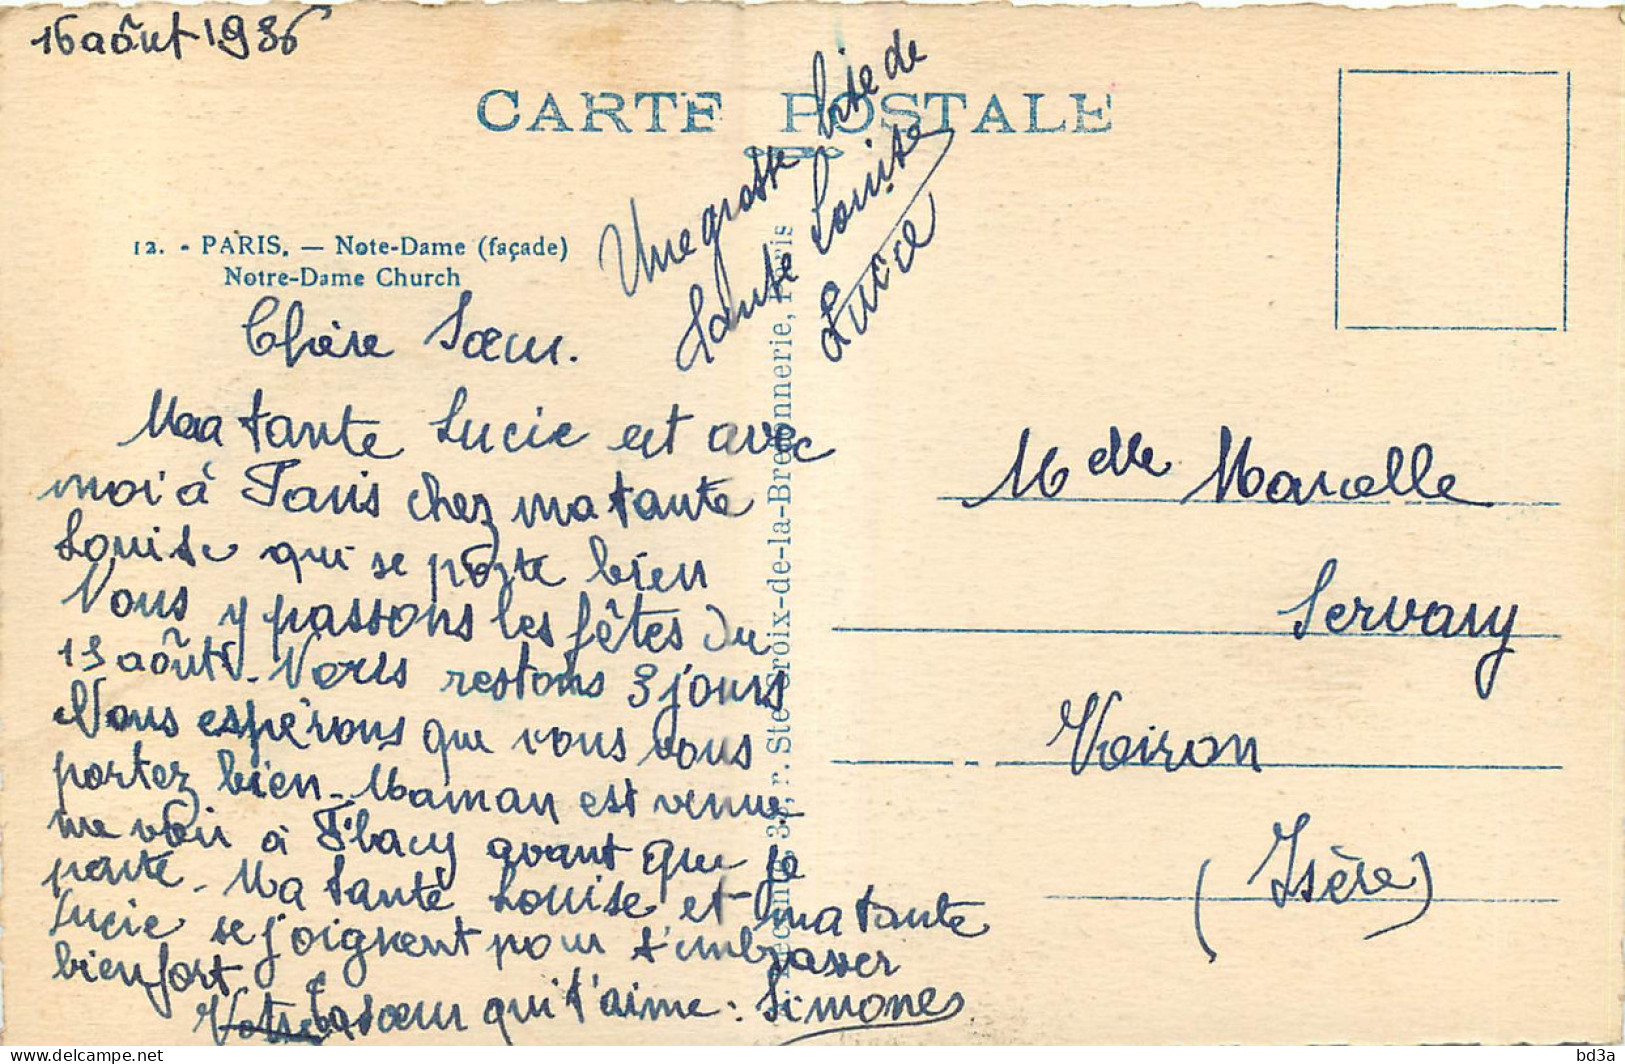 16 aôut 1936
CARTE POSTALE
12. - PARIS. — Note-Dame (façade)
Notre-Dame Church
Une grosse bise de
tante Louise
Lucie
Chère Sœur.
Ma tante Lucie est avec
moi à Paris chez ma tante
Louise qui se porte bien
Nous y passons les fêtes du
15 aôut. Nous restons 3 jours
Nous espérons que vous vous
portez bien. Maman est venue
me voir à Flacy avant que je
parte. Ma tante Louise et ma tante
Lucie se joignent pour t'embrasser
bien fort.
Votre ta sœur qui t'aime : Simone
r. Ste-Croix-de-la-Bretonnerie, Paris
Mdlle Marcelle
Servary
Voiron
(Isère)
delcampe.net
bd3a